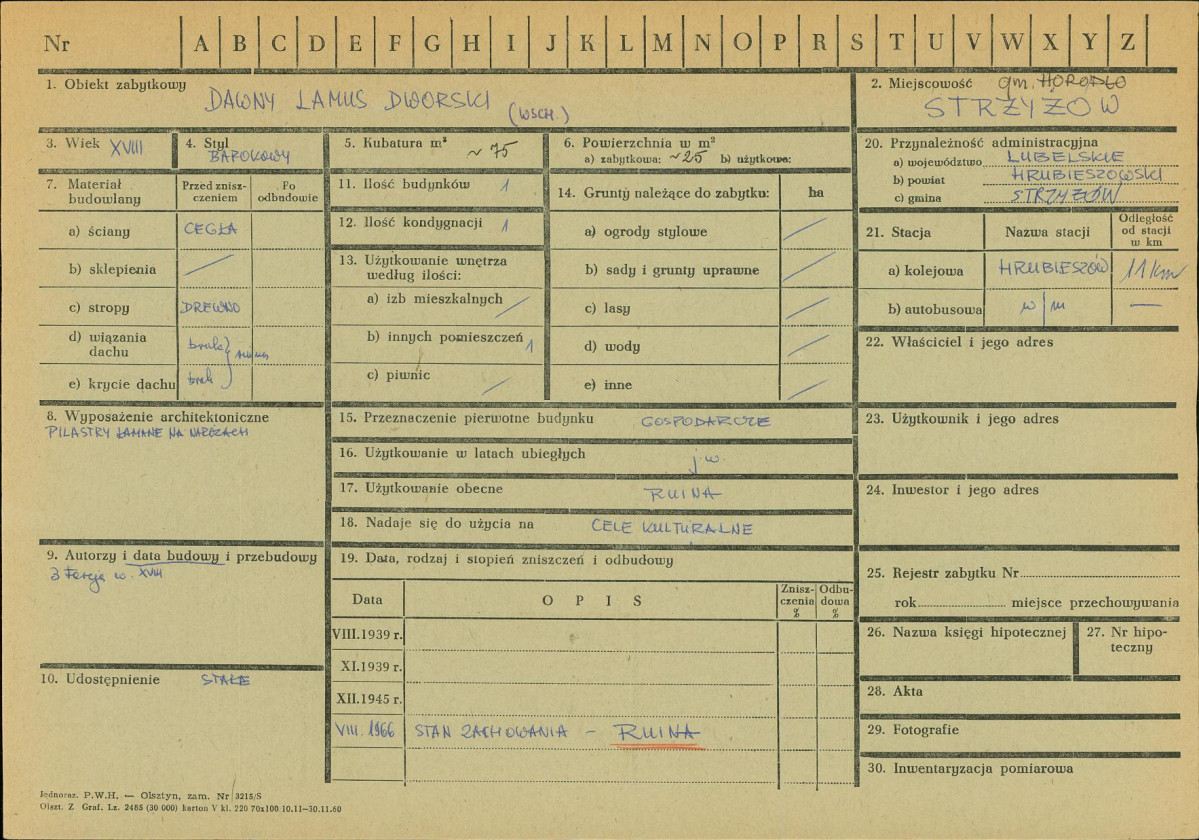 Nr A B C D E F G H I J K L M N O P R S T U V W X Y Z
1. Obiekt zabytkowy
DAWNY LAMUS DWORSKI (WSCH.)
2. Miejscowość gm. HORODŁO
STRZYŻÓW
3. Wiek XVIII
4. Styl
BAROKOWY
5. Kubatura m³ ~ 75
6. Powierzchnia w m²
a) zabytkowa: ~25 b) użytkowa:
7. Materiał budowlany
Przed zniszczeniem
Po odbudowie
a) ściany CEGŁA
b) sklepienia
c) stropy DREWNO
d) wiązania dachu brak
e) krycie dachu brak
8. Wyposażenie architektoniczne
PILASTRY ŁAMANE NA NAROŻACH
9. Autorzy i data budowy i przebudowy
3 tercja w. XVIII
10. Udostępnienie STAŁE
11. Ilość budynków 1
12. Ilość kondygnacji 1
13. Użytkowanie wnętrza
według ilości:
a) izb mieszkalnych
b) innych pomieszczeń 1
c) piwnic
14. Grunty należące do zabytku: ha
a) ogrody stylowe
b) sady i grunty uprawne
c) lasy
d) wody
e) inne
15. Przeznaczenie pierwotne budynku GOSPODARCZE
16. Użytkowanie w latach ubiegłych j.w.
17. Użytkowanie obecne RUINA
18. Nadaje się do użycia na CELE KULTURALNE
19. Data, rodzaj i stopień zniszczeń i odbudowy
Data OPIS Zniszczenia % Odbudowa %
VIII.1939 r.
XI.1939 r.
XII.1945 r.
VIII. 1966 STAN ZACHOWANIA – RUINA
20. Przynależność administracyjna
a) województwo LUBELSKIE
b) powiat HRUBIESZOWSKI
c) gmina STRZYŻÓW
21. Stacja Nazwa stacji Odległość od stacji w km
a) kolejowa HRUBIESZÓW 11 km
b) autobusowa w/m —
22. Właściciel i jego adres
23. Użytkownik i jego adres
24. Inwestor i jego adres
25. Rejestr zabytku Nr
rok miejsce przechowywania
26. Nazwa księgi hipotecznej
27. Nr hipoteczny
28. Akta
29. Fotografie
30. Inwentaryzacja pomiarowa
Jednoraz. P.W.H. — Olsztyn, zam. Nr 3215/S
Olszt. Z. Graf. Lz. 2485 (30 000) karton V kl. 220 70x100 10.11—30.11.60